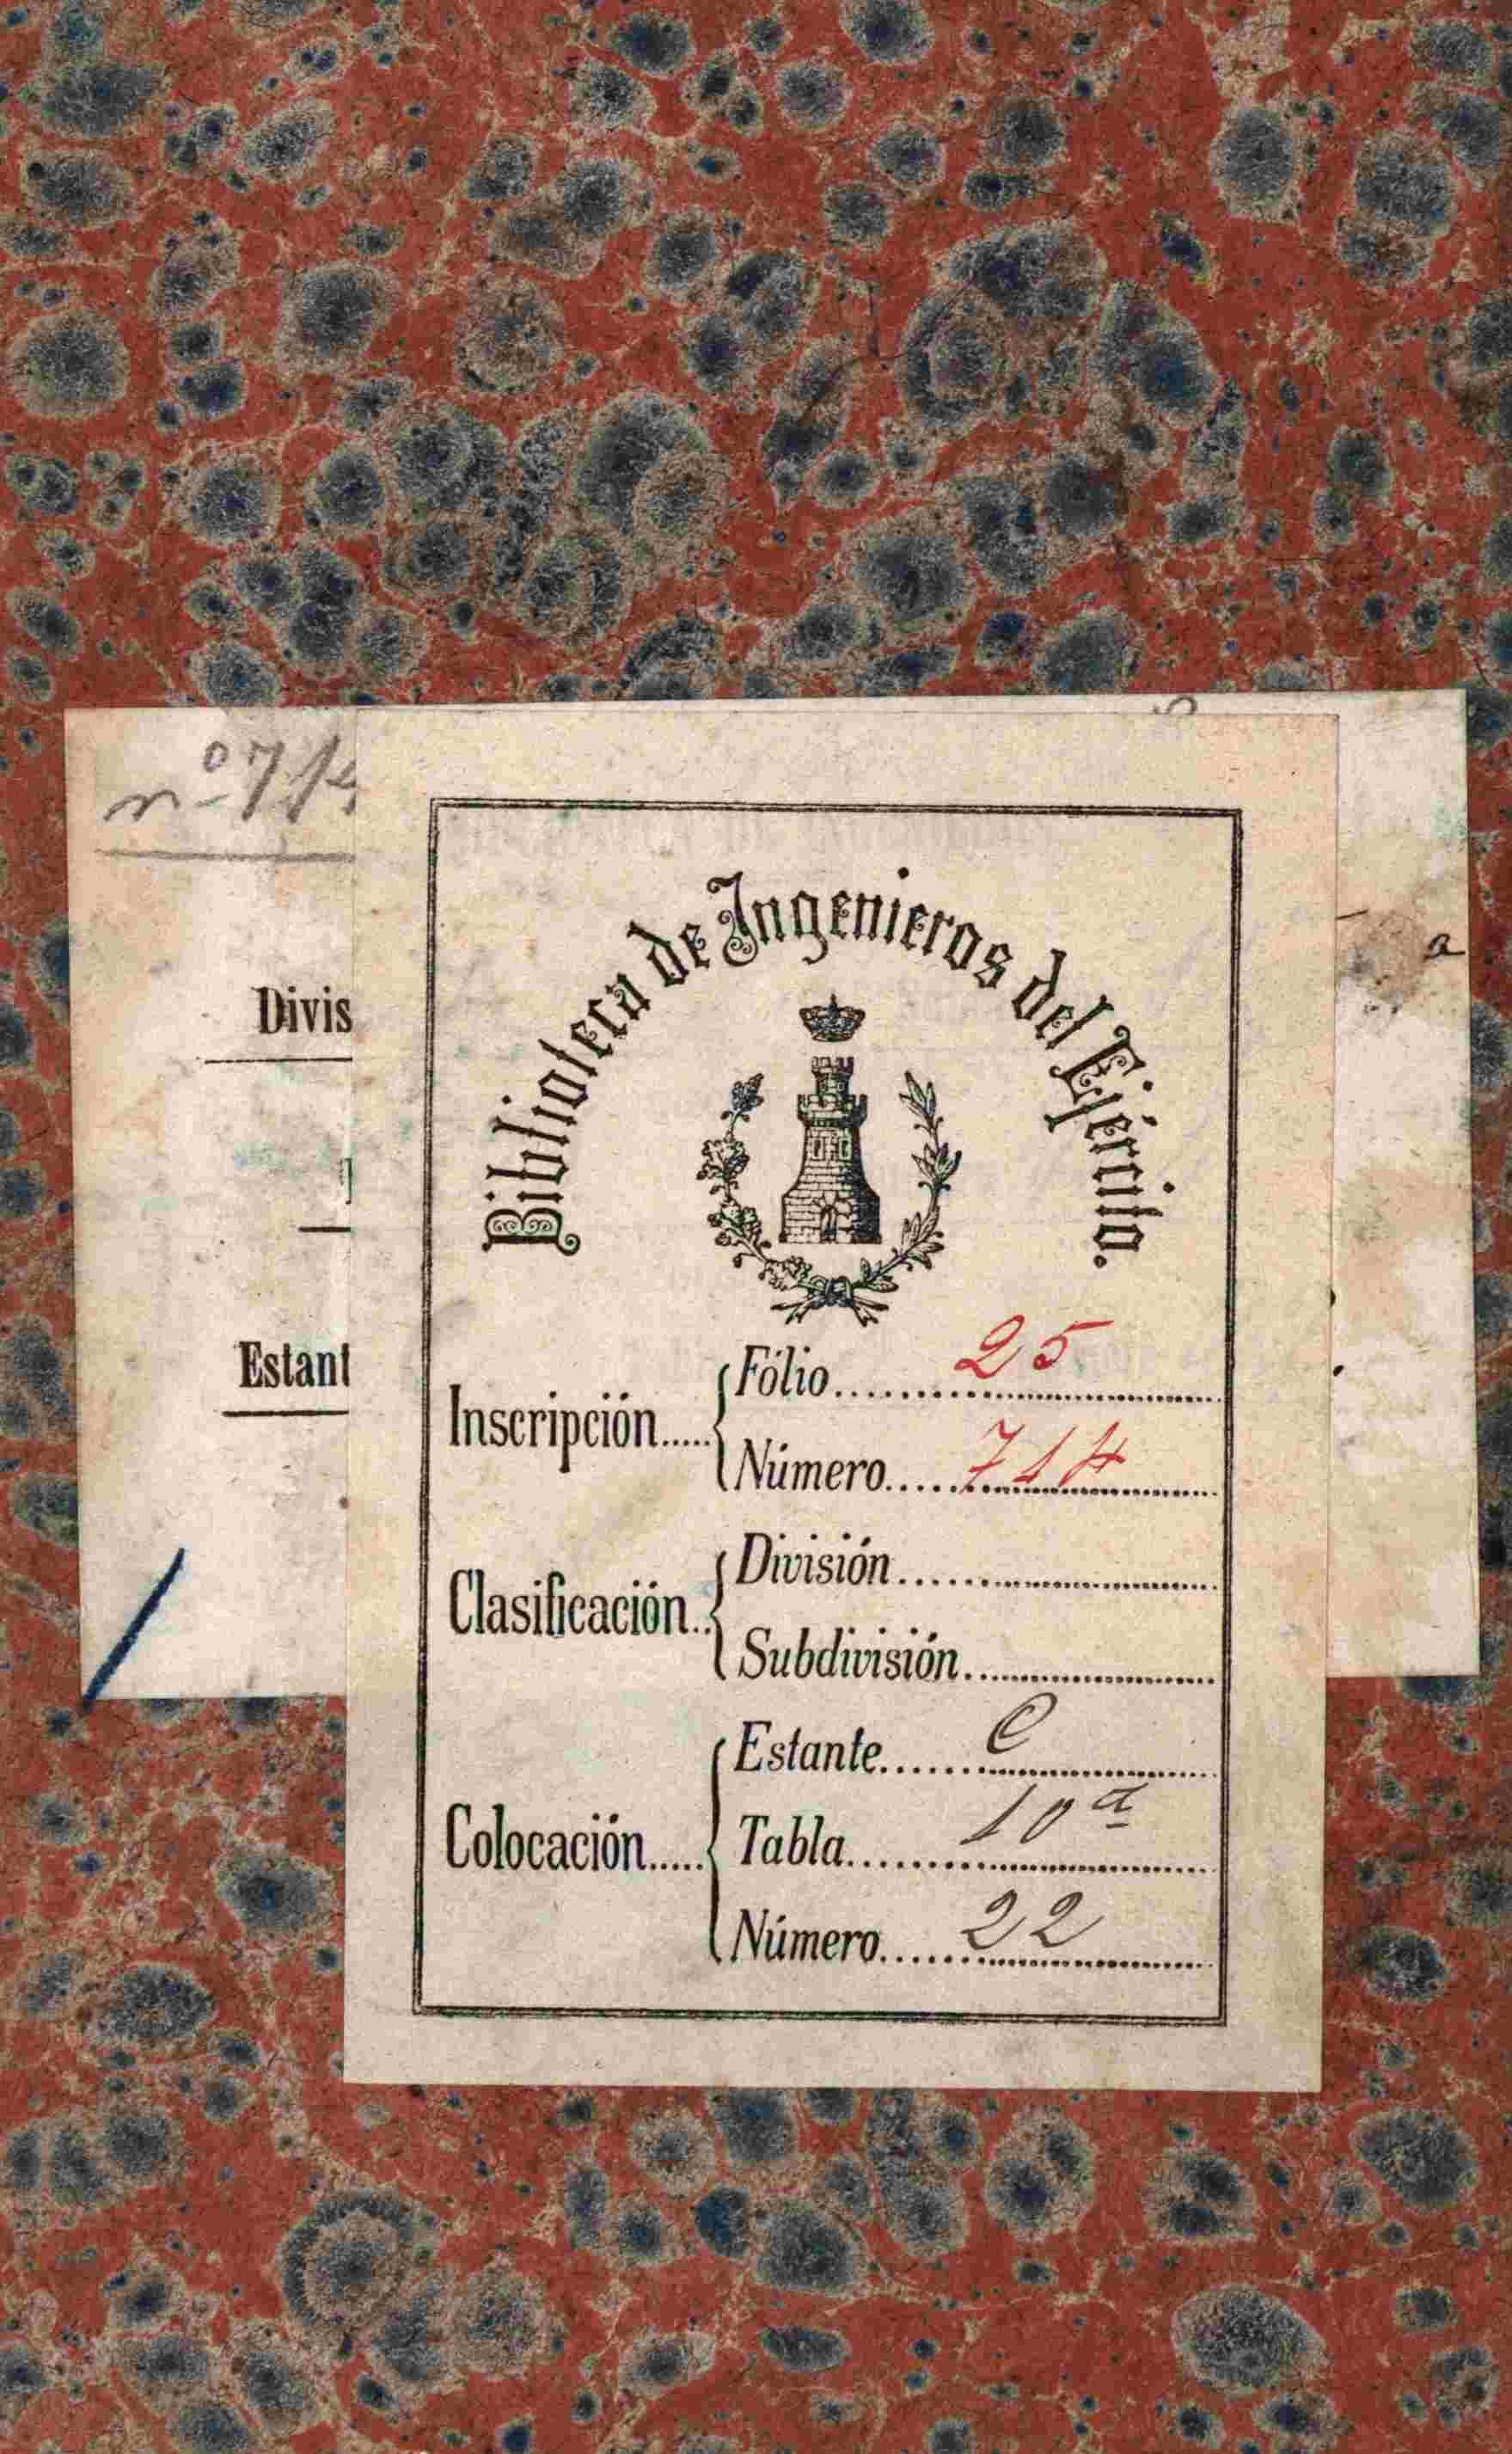 nº 714
Divis
Estant
a
Biblioteca de Ingenieros del Ejército.
Inscripción.....
Fólio.......... 25
Número..... 714
Clasificación..
División..........
Subdivisión..........
Colocación.....
Estante....... C
Tabla.......... 10ª
Número...... 22